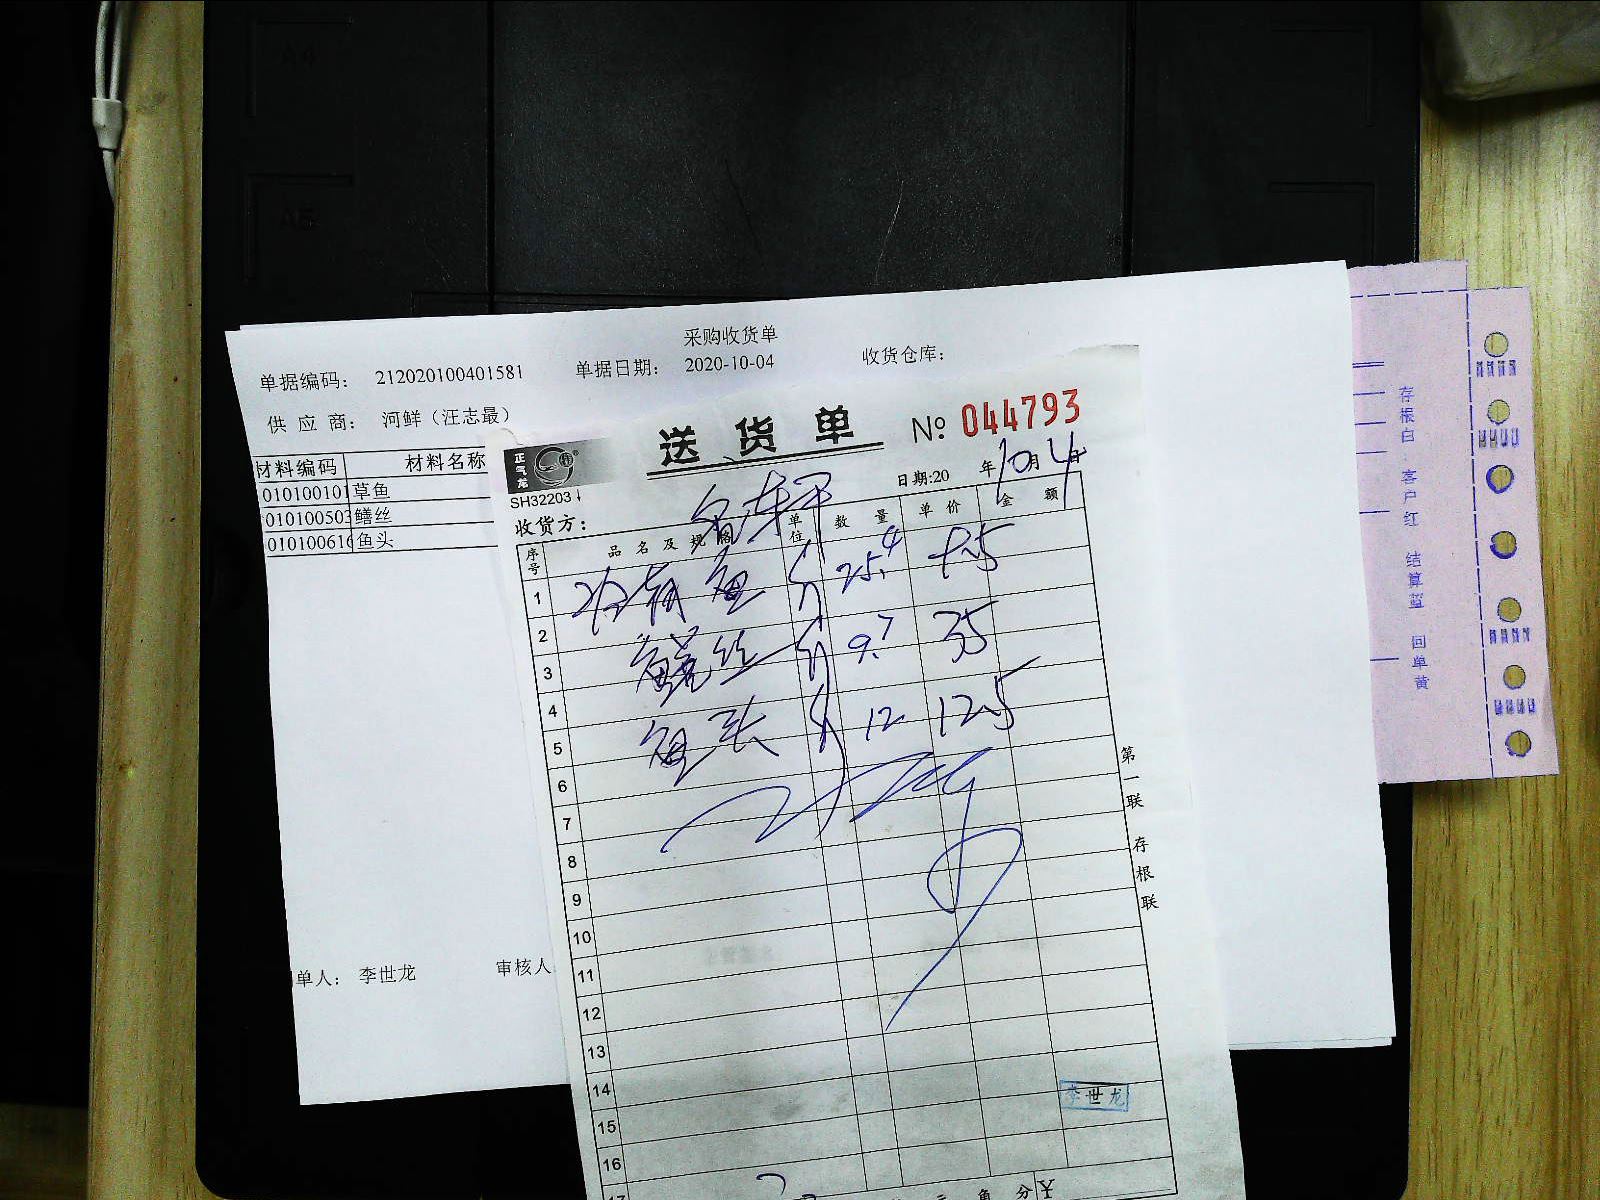 采购收货单
单据编码: 212020100401581 单据日期: 2020-10-04 收货仓库:
供 应 商: 河鲜（汪志最）
材料编码 材料名称
010100101 草鱼
010100503 鳝丝
010100616 鱼头
单人: 李世龙 审核人
正气龙
SH32203
送 货 单 № 044793
日期:20 年10月4日
收货方:
序号 品名及规格 单位 数 量 单 价 金 额
1 鱼 斤 25.4 9.5
2
3 鳝丝 斤 9.7 35
4
5 鱼头 斤 12 12.5
6
7
8
9
10
11
12
13
14
15
16
17
李世龙
角 分 ¥
第一联 存根联
存根白 客户红 结算蓝 回单黄
A4
A5